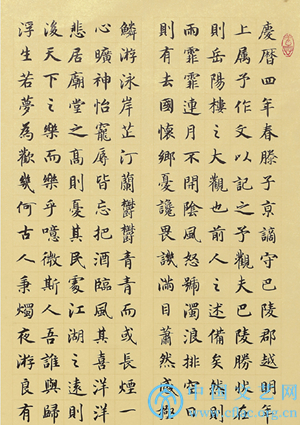 慶曆四年春滕子京謫守巴陵郡越明年
上属予作文以記之予觀夫巴陵勝狀在
則岳陽樓之大觀也前人之述備矣然則
雨霏霏連月不開陰風怒號濁浪排空日
則有去國懷鄉憂讒畏譏滿目蕭然感極
鱗游泳岸芷汀蘭鬱鬱青青而或長煙一
心曠神怡寵辱皆忘把酒臨風其喜洋洋
悲居廟堂之高則憂其民處江湖之遠則
後天下之樂而樂乎噫微斯人吾誰與歸
浮生若夢為歡幾何古人秉燭夜游良有
中国文艺网